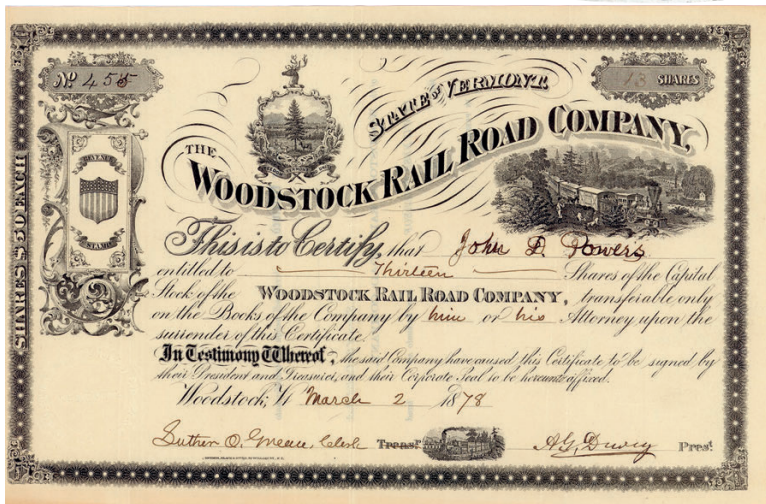 No 455
13 SHARES
STATE OF VERMONT.
THE
WOODSTOCK RAIL ROAD COMPANY,
REVENUE
STAMP
SHARES $50 EACH
This is to Certify, that John D. Powers
entitled to Thirteen Shares of the Capital
Stock of the WOODSTOCK RAIL ROAD COMPANY, transferable only
on the Books of the Company by him or his Attorney upon the
surrender of this Certificate.
In Testimony Whereof, the said Company have caused this Certificate to be signed by
their President and Treasurer, and their Corporate Seal to be hereunto affixed.
Woodstock, Vt March 2 1878
Luther O. Greene, Clerk Treasr.
Prest.